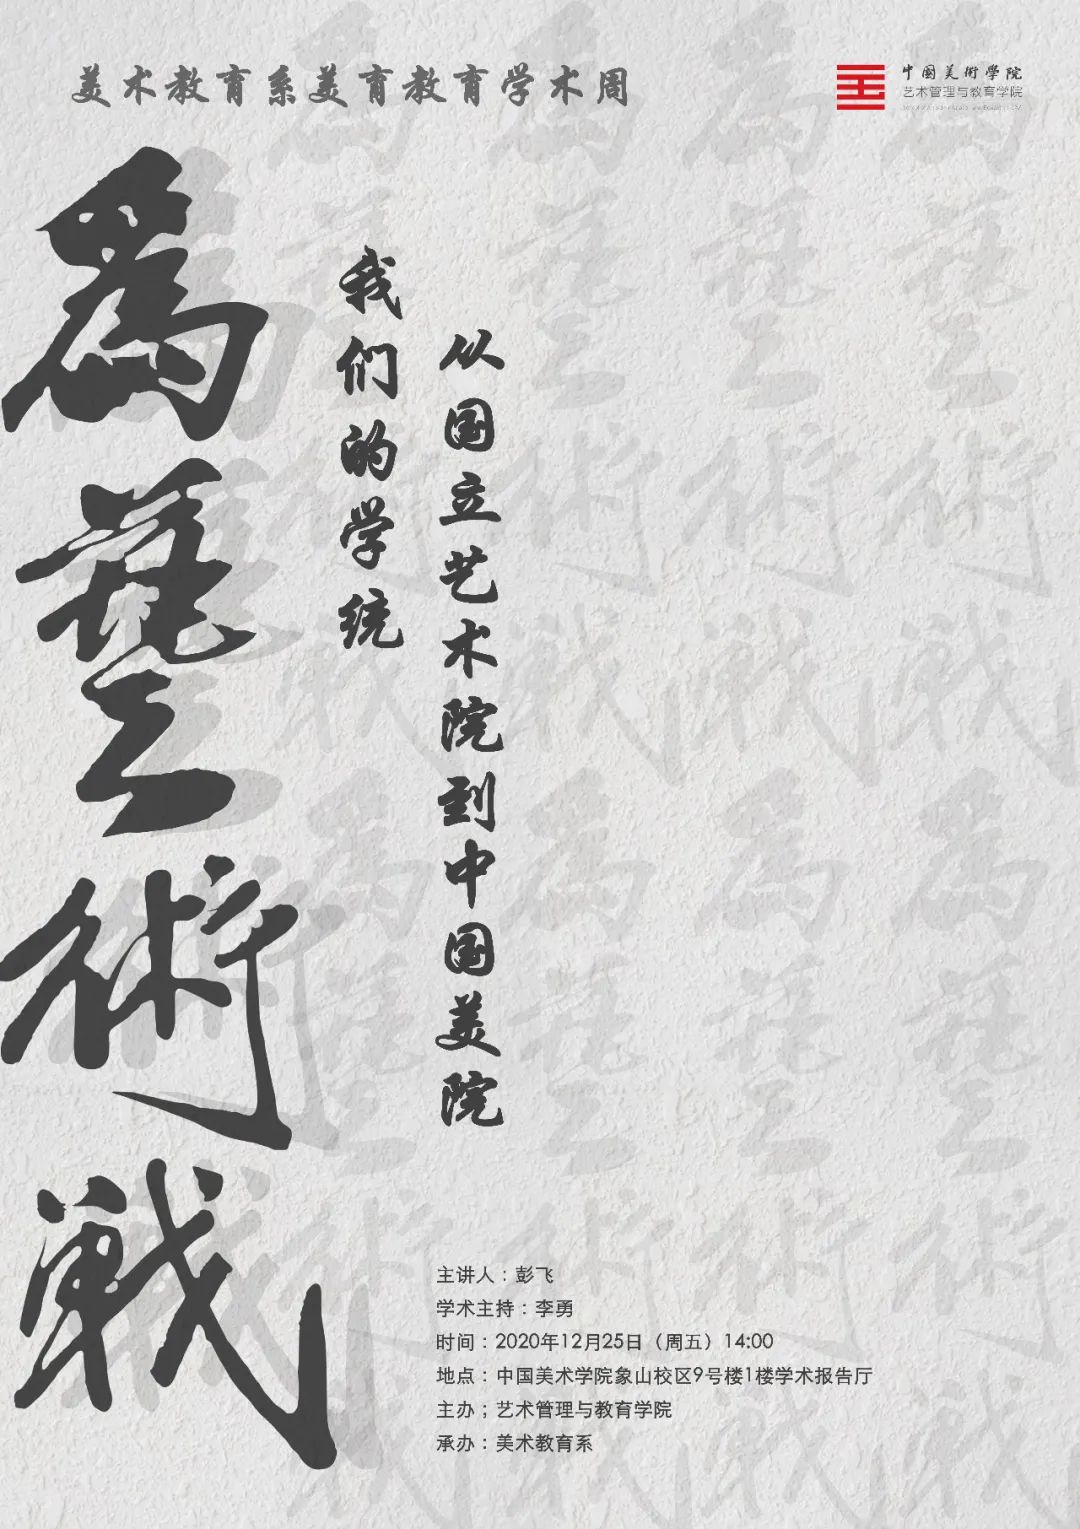 美术教育系美育教育学术周
中国美術學院
艺术管理与教育学院
為藝術戰
我们的学统
从国立艺术院到中国美院
主讲人：彭飞
学术主持：李勇
时间：2020年12月25日（周五）14:00
地点：中国美术学院象山校区9号楼1楼学术报告厅
主办；艺术管理与教育学院
承办：美术教育系